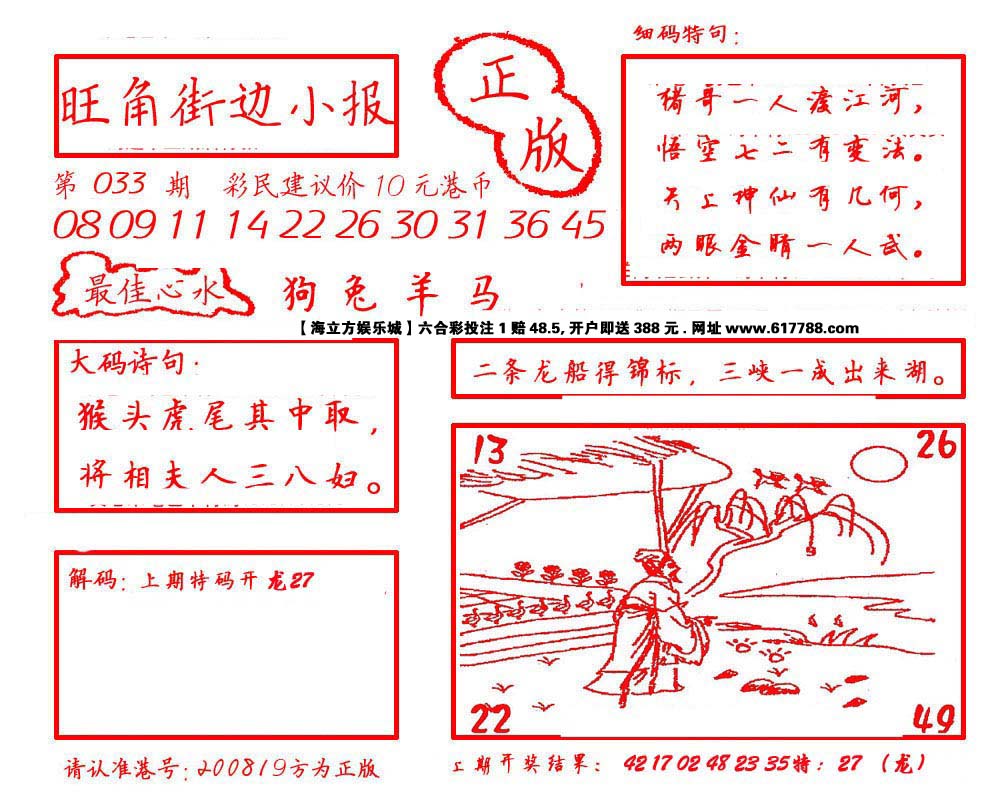 细码特句：
旺角街边小报
正版
猪哥一人渡江河，
悟空七二有变法。
天上神仙有几何，
两眼金睛一人武。
第 033 期 彩民建议价 10 元港币
08 09 11 14 22 26 30 31 36 45
最佳心水 狗 兔 羊 马
【海立方娱乐城】六合彩投注 1 赔 48.5, 开户即送 388 元 . 网址 www.617788.com
大码诗句：
猴头虎尾其中取，
将相夫人三八妇。
二条龙船得锦标，三峡一成出来湖。
13
26
22
49
解码：上期特码开龙27
请认准港号：200819方为正版
上期开奖结果：42 17 02 48 23 35特：27（龙）